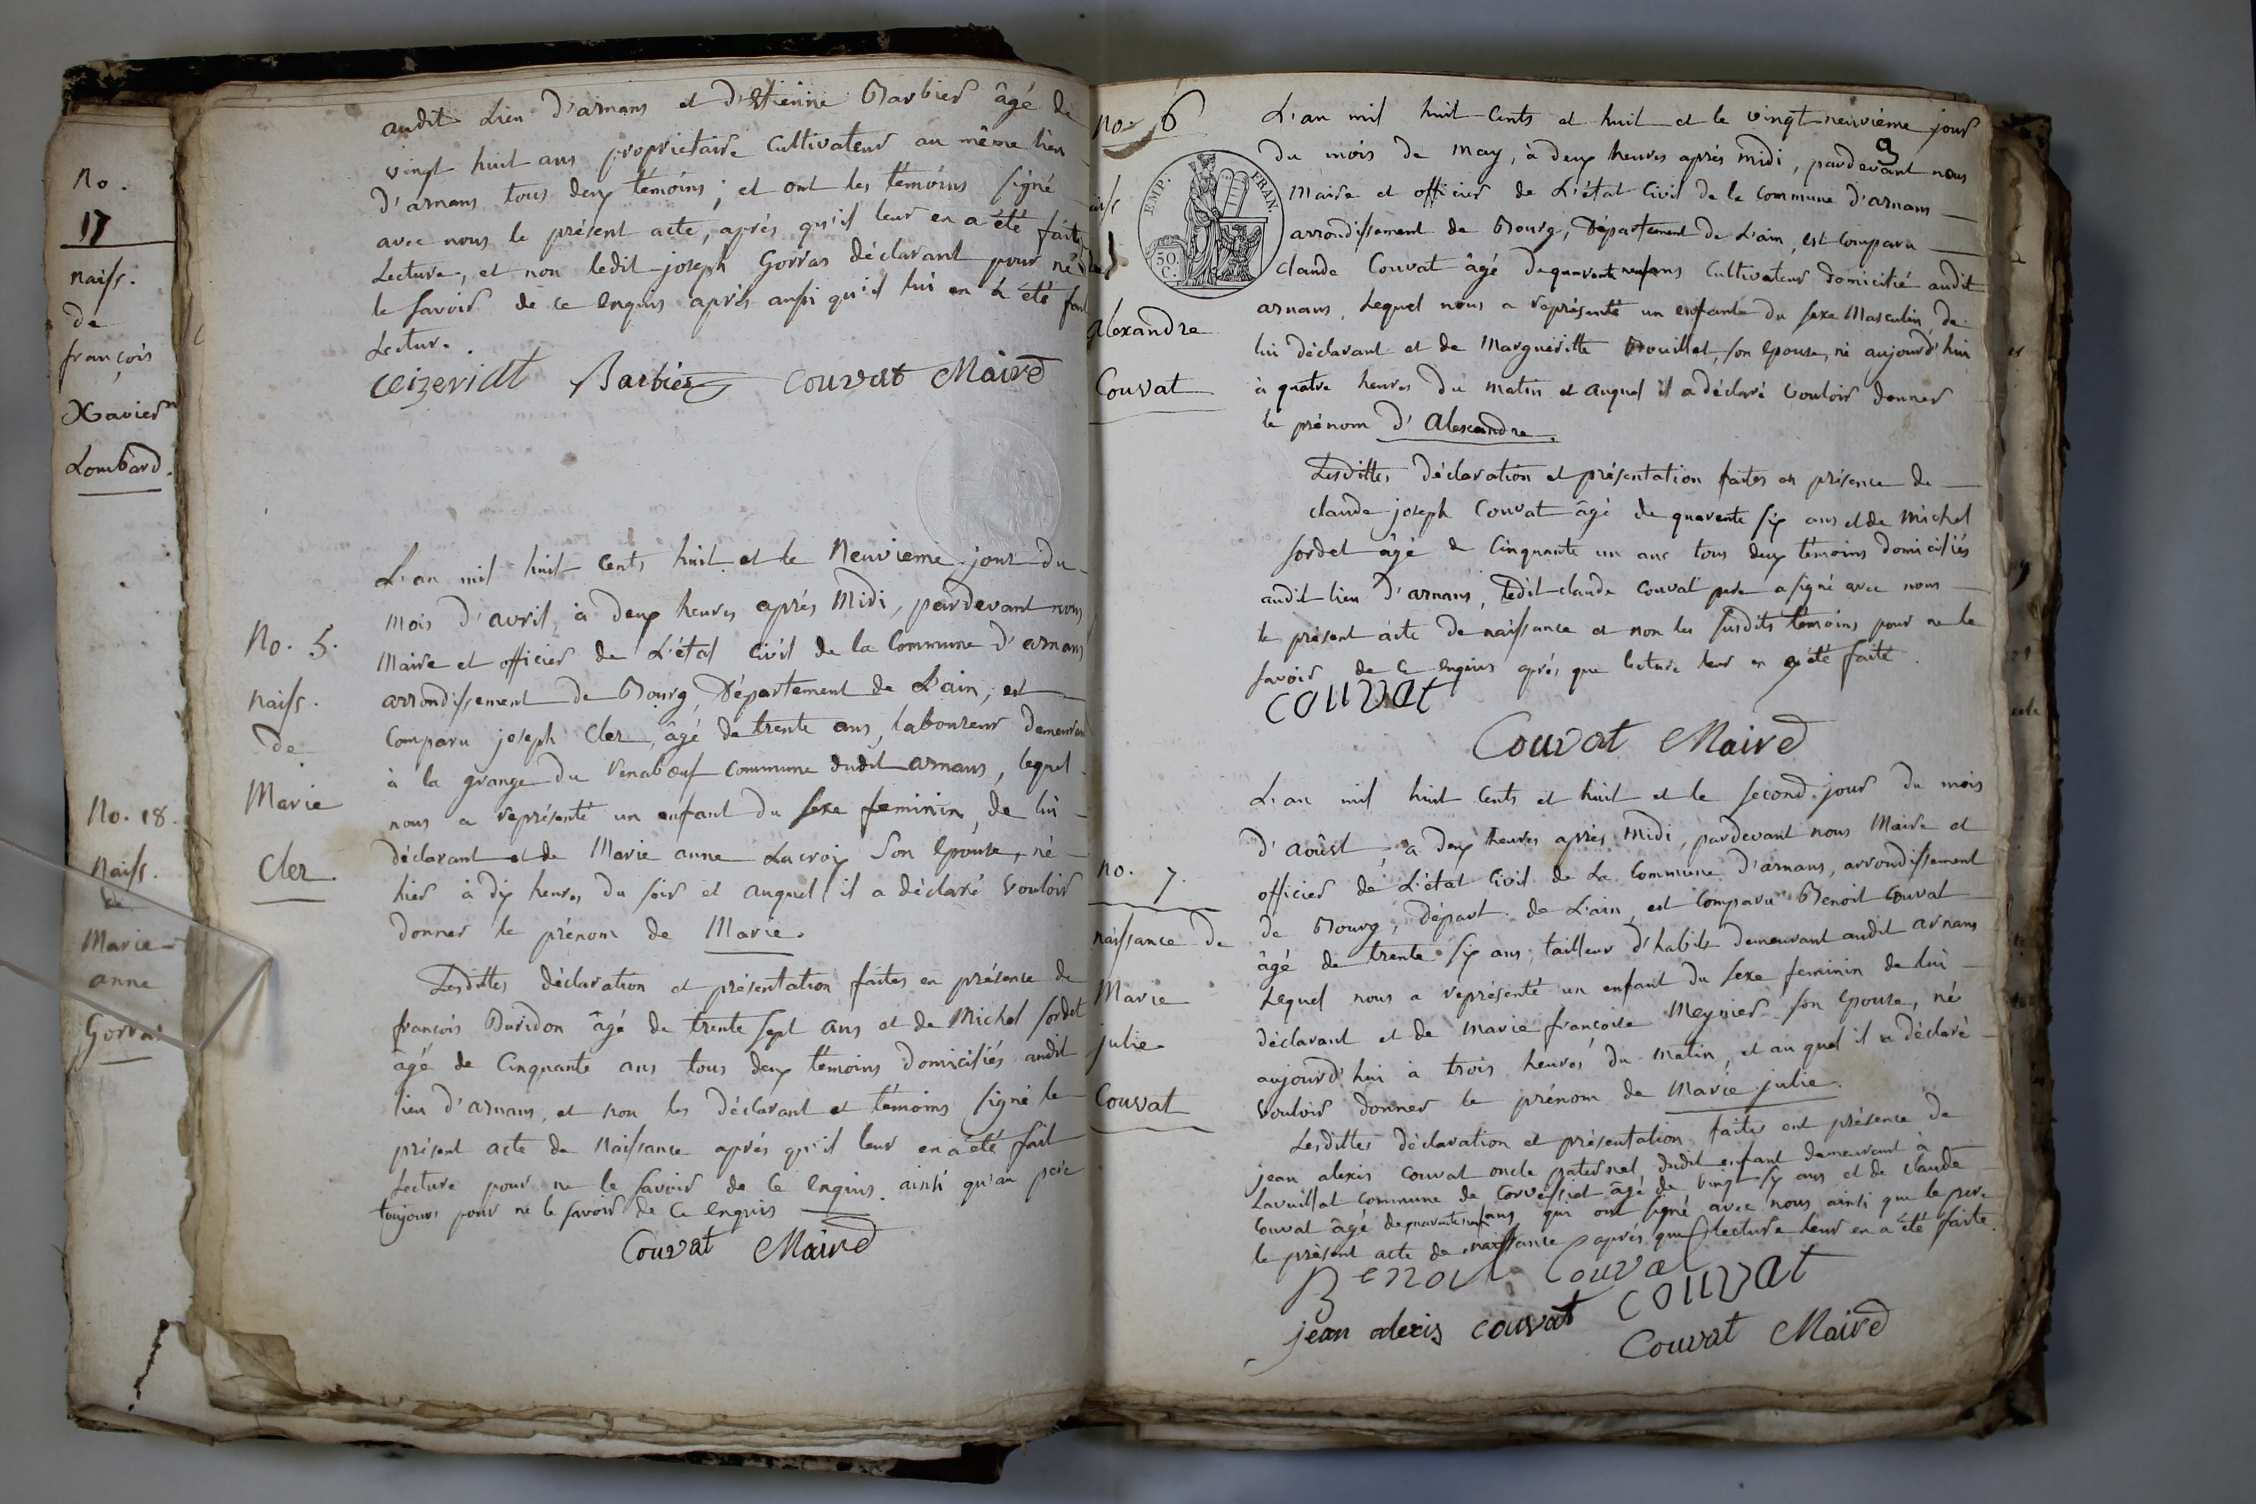 No.
17
naiss.
de
françois
Xavier
Lombard.
No. 18.
Naiss.
de
Marie
anne
Gorras
audit Lieu d'arnans et d'Etienne Barbier âgé de
vingt huit ans propriétaire Cultivateur au même lieu
d'arnans tous deux témoins; et ont les témoins signé
avec nous le présent acte, après qu'il leur en a été faite
Lecture, et non ledit joseph Gorras déclarant pour ne
le savoir de ce Enquis après aussi qu'il lui en a été fait
Lecture.
Barbier Couvat Maire
No. 5.
naiss.
de
Marie
Cler.
L'an mil huit Cents huit et le Neuvieme jour du
mois d'avril, à deux heures après Midi, pardevant nous
Maire et officier de L'état Civil de la Commune d'arnans
arrondissement de Bourg, Département de L'ain, est
Comparu joseph Cler, âgé de trente ans, laboureur demeurant
à la grange du Venabœuf Commune dudit arnans, lequel
nous a représenté un enfant du sexe feminin, de lui
déclarant et de Marie anne Lacroix Son Epouse, né
hier à dix heures du soir et auquel il a déclaré Vouloir
donner le prénom de Marie.
Lesdittes déclaration et présentation faites en présence de
françois Buridon âgé de trente sept ans et de Michel sordet
âgé de Cinquante ans tous deux témoins domiciliés audit
lieu d'arnans, et non les déclarant et témoins signé le
présent acte de Naissance après qu'il leur en a été fait
Lecture pour ne le savoir de Ce Enquis. ainsi qu'au père
toujours pour ne le savoir de Ce Enquis
Couvat Maire
no. 6
Alexandre
Couvat
EMP. FRAN.
50.
C.
L'an mil huit Cents et huit et le vingt-neuvième jour
du mois de May, à deux heures après midi, pardevant nous
Maire et officier de L'état Civil de la Commune d'arnans
arrondissement de Bourg, Département de L'ain, est Comparu
Claude Couvat âgé de quarante neuf ans Cultivateur domicilié audit
arnans, Lequel nous a représenté un enfant du sexe Masculin, de
lui déclarant et de Margueritte Brouillet, son Epouse, né aujourd'hui
à quatre heures du matin et auquel il a déclaré Vouloir donner
le prénom d'Alexandre.
Lesdittes déclaration et présentation faites en présence de
claude joseph Couvat âgé de quarente six ans et de Michel
sordet âgé de Cinquante un ans tous deux témoins domiciliés
audit lieu d'arnans, Ledit claude Couvat père a signé avec nous
le présent acte de naissance et non les susdits témoins pour ne le
savoir de Ce Enquis après que lecture leur en a été faite.
couvat
Couvat Maire
no. 7.
naissance de
Marie
julie
Couvat
L'an mil huit Cents et huit et le second jour du mois
d'Août, à deux heures après Midi, pardevant nous Maire et
officier de L'état Civil de La Commune d'arnans, arrondissement
de Bourg, Départ. de L'ain, est Comparu Benoit Couvat
âgé de trente six ans, tailleur d'habits demeurant audit arnans
Lequel nous a représenté un enfant du sexe feminin de lui
déclarant et de Marie françoise Meynier son Epouse, né
aujourd'hui à trois heures du matin, et au quel il a déclaré
Vouloir donner le prénom de Marie julie.
Lesdittes déclaration et présentation faites ent présence de
jean alexis Couvat oncle paternel dudit enfant demeurant à
Lavillat Commune de Corveissiat âgé de vingt six ans et de claude
Couvat âgé de quarante neuf ans qui ont signé avec nous ainsi que le père
le présent acte de naissance après que lecture leur en a été faite.
Benoit Couvat
couvat
jean alexis couvat
Couvat Maire